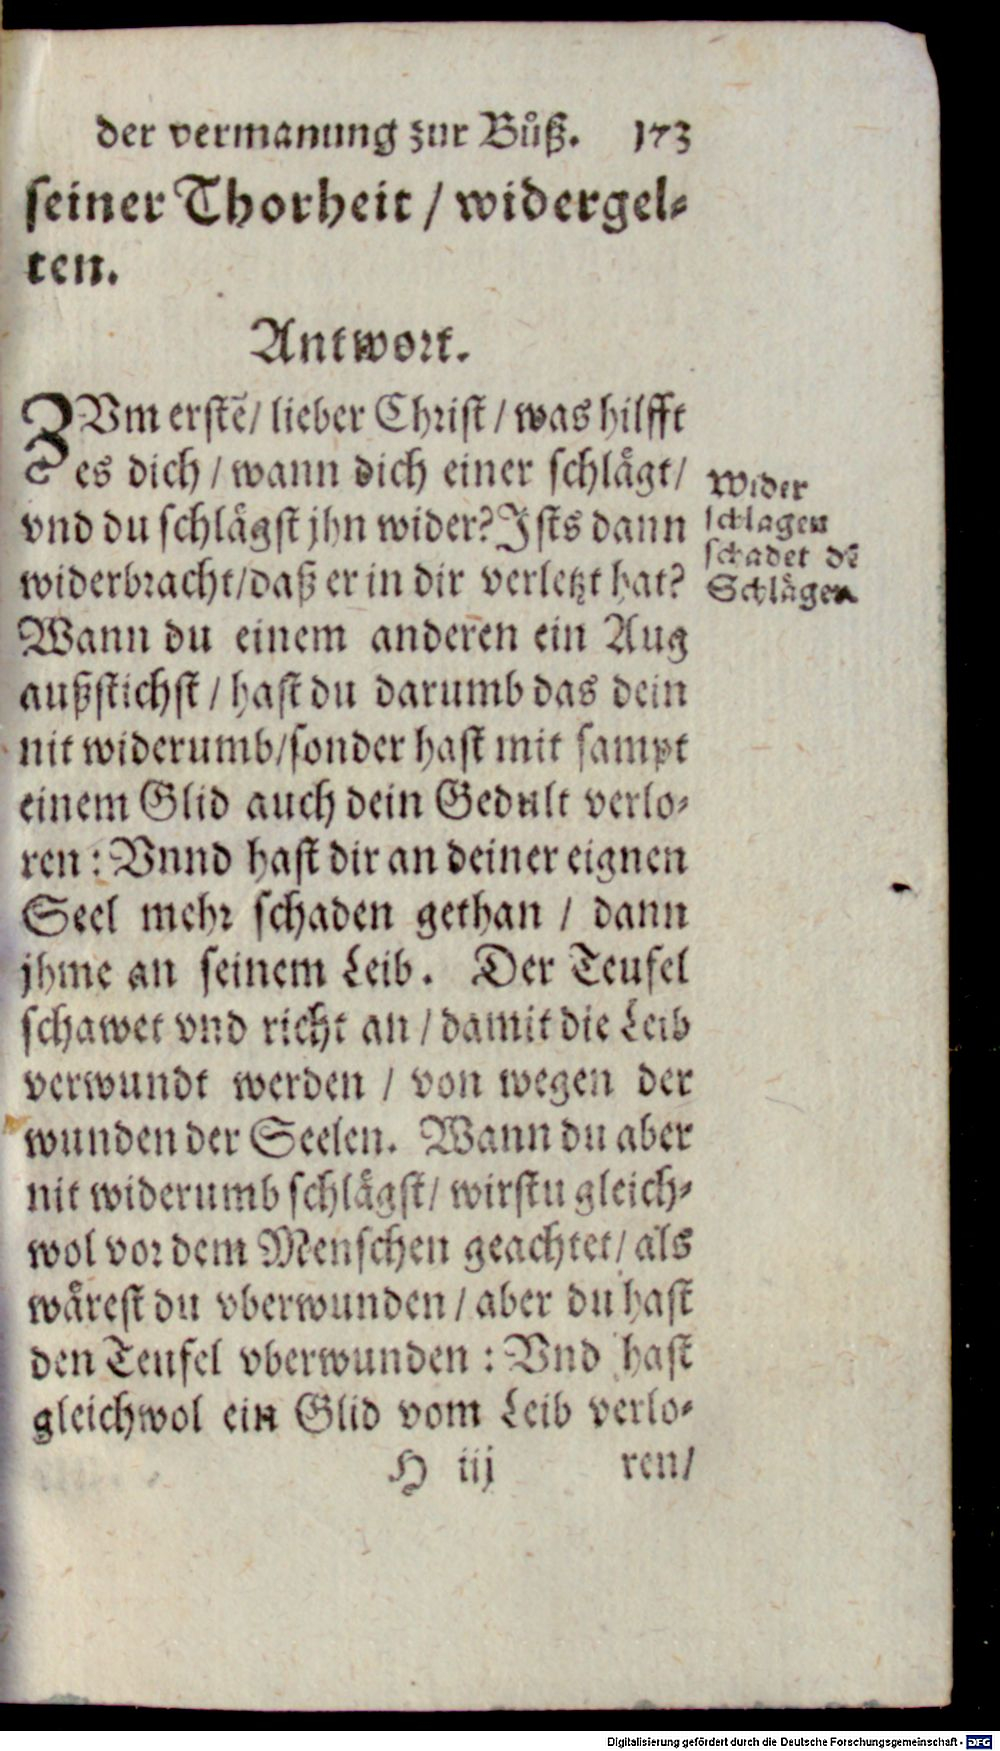 der vermanung zur Bůß. 173
seiner Thorheit / widergel⸗
ten.
Antwort.
ZVm erstē / lieber Christ / was hilfft
es dich / wann dich einer schlågt /
vnd du schlågst jhn wider? Ists dann
widerbracht / daß er in dir verletzt hat?
Wann du einem anderen ein Aug
außstichst / hast du darumb das dein
nit widerumb / sonder hast mit sampt
einem Glid auch dein Gedult verlo⸗
ren : Vnnd hast dir an deiner eignen
Seel mehr schaden gethan / dann
jhme an seinem Leib. Der Teufel
schawet vnd richt an / damit die Leib
verwundt werden / von wegen der
wunden der Seelen. Wann du aber
nit widerumb schlågst / wirstu gleich⸗
wol vor dem Menschen geachtet / als
wårest du vberwunden / aber du hast
den Teufel vberwunden : Vnd hast
gleichwol ein Glid vom Leib verlo⸗
H iij ren /
Wider
schlagen
schadet dē
Schlågen
Digitalisierung gefördert durch die Deutsche Forschungsgemeinschaft - DFG